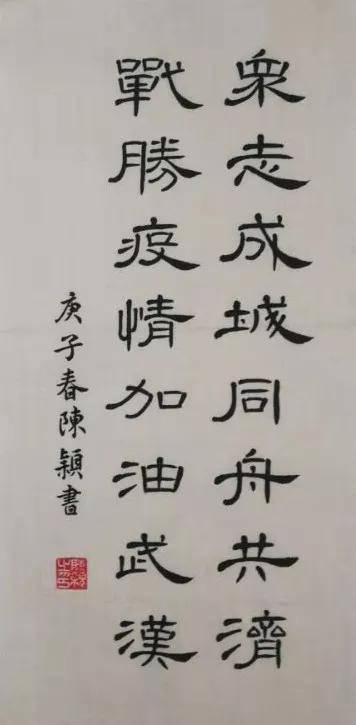 眾志成城同舟共濟
戰勝疫情加油武漢
庚子春陳穎書